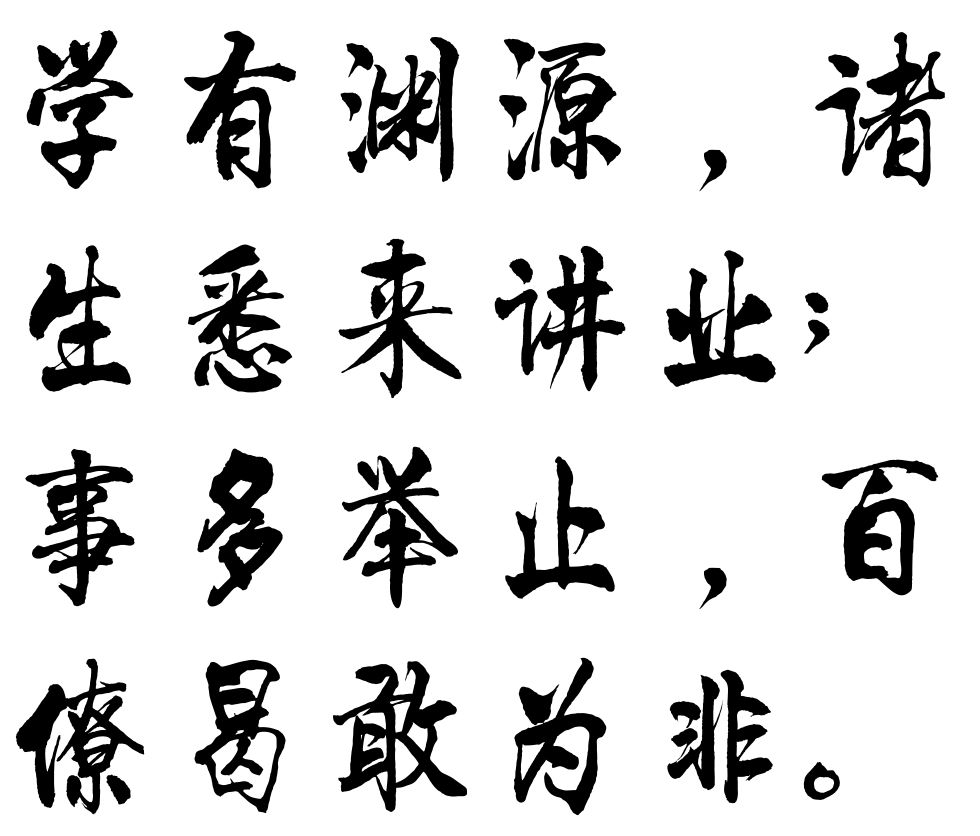 学有渊源，诸
生悉来讲业；
事多举止，百
僚曷敢为非。